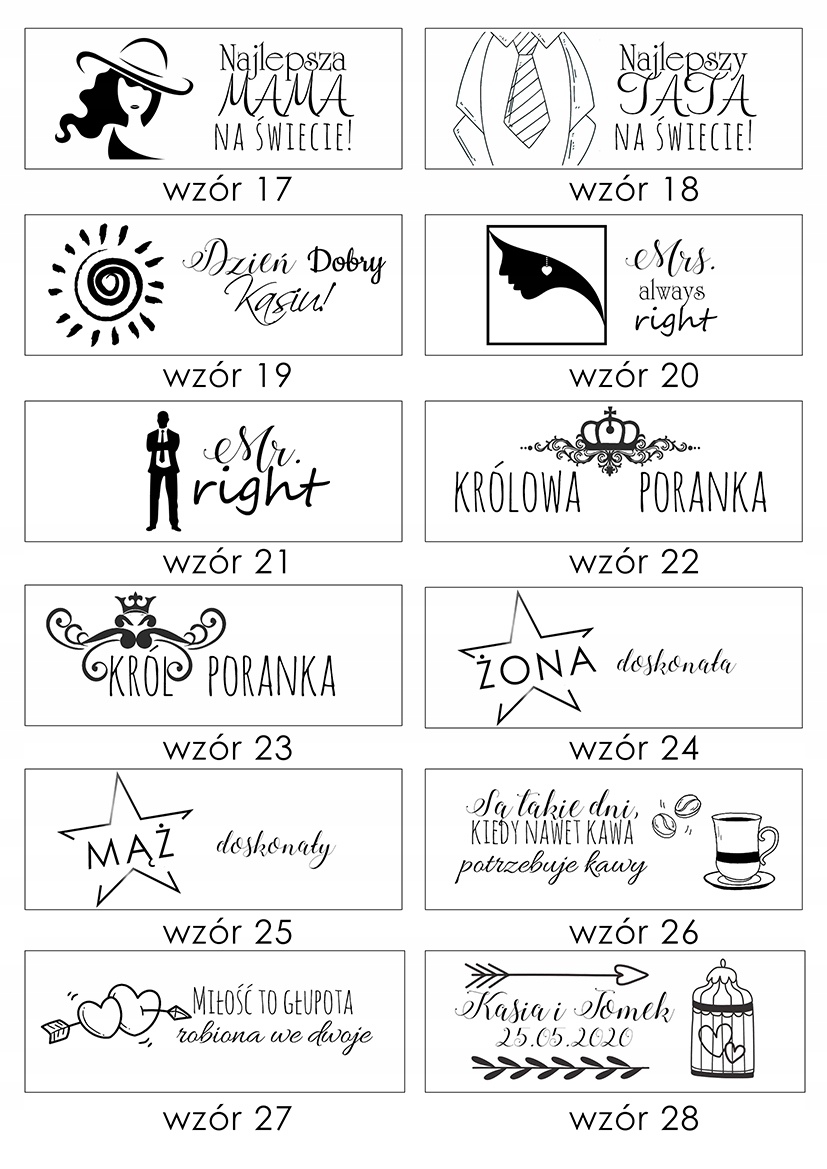 Najlepsza
MAMA
NA ŚWIECIE!
wzór 17
Najlepszy
TATA
NA ŚWIECIE!
wzór 18
Dzień Dobry
Kasiu!
wzór 19
Mrs.
always
right
wzór 20
Mr.
right
wzór 21
KRÓLOWA PORANKA
wzór 22
KRÓL PORANKA
wzór 23
ŻONA doskonała
wzór 24
MĄŻ doskonały
wzór 25
Są takie dni,
KIEDY NAWET KAWA
potrzebuje kawy
wzór 26
MIŁOŚĆ TO GŁUPOTA
robiona we dwoje
wzór 27
Kasia i Tomek
25.05.2020
wzór 28